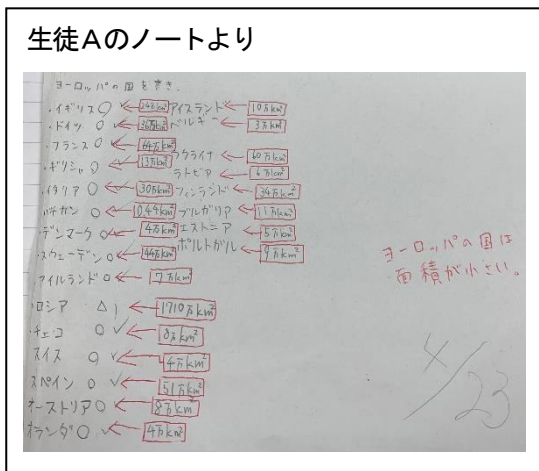 生徒Aのノートより
ヨーロッパの国を書き
・イギリス○ ✓ ← 24万km² アイスランド ← 10万km²
・ドイツ ○ ✓ ← 36万km² ベルギー ← 3万km²
・フランス ○ ← 64万km²
・ギリシャ○ ← 13万km² ウクライナ ← 60万km²
ラトビア ← 6万km²
・イタリア ○ ← 30万km² フィンランド ← 34万km²
バチカン ○ ← 0.44km² ブルガリア ← 11万km²
・デンマーク○ ← 4万km² エストニア ← 5万km²
・スウェーデン○ ← 44万km² ポルトガル ← 9万km²
・アイルランド ○ ← 7万km²
・ロシア △ ← 1710万km²
・チェコ ○ ✓ ← 8万km²
スイス ○ ✓ ← 4万km²
スペイン ○ ✓ ← 51万km²
オーストリア○ ← 8万km²
オランダ○ ✓ ← 4万km²
ヨーロッパの国は
面積が小さい。
4/23